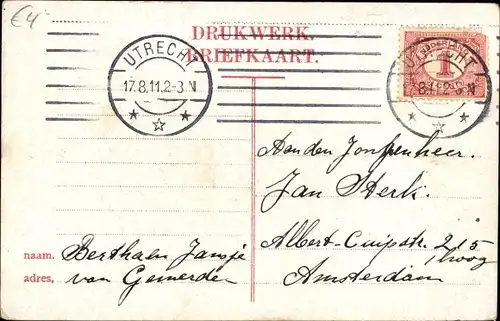 €4
DRUKWERK.
BRIEFKAART.
UTRECHT
17.8.11.2-3 N
NEDERLAND
1
UTRECHT
8.11.2-3.N
Aan den Jongenheer.
Jan Sterk.
Albert-Cuipstr. 215
1 hoog
Amsterdam
naam. Bertha en Jansje
adres, van Gemerden